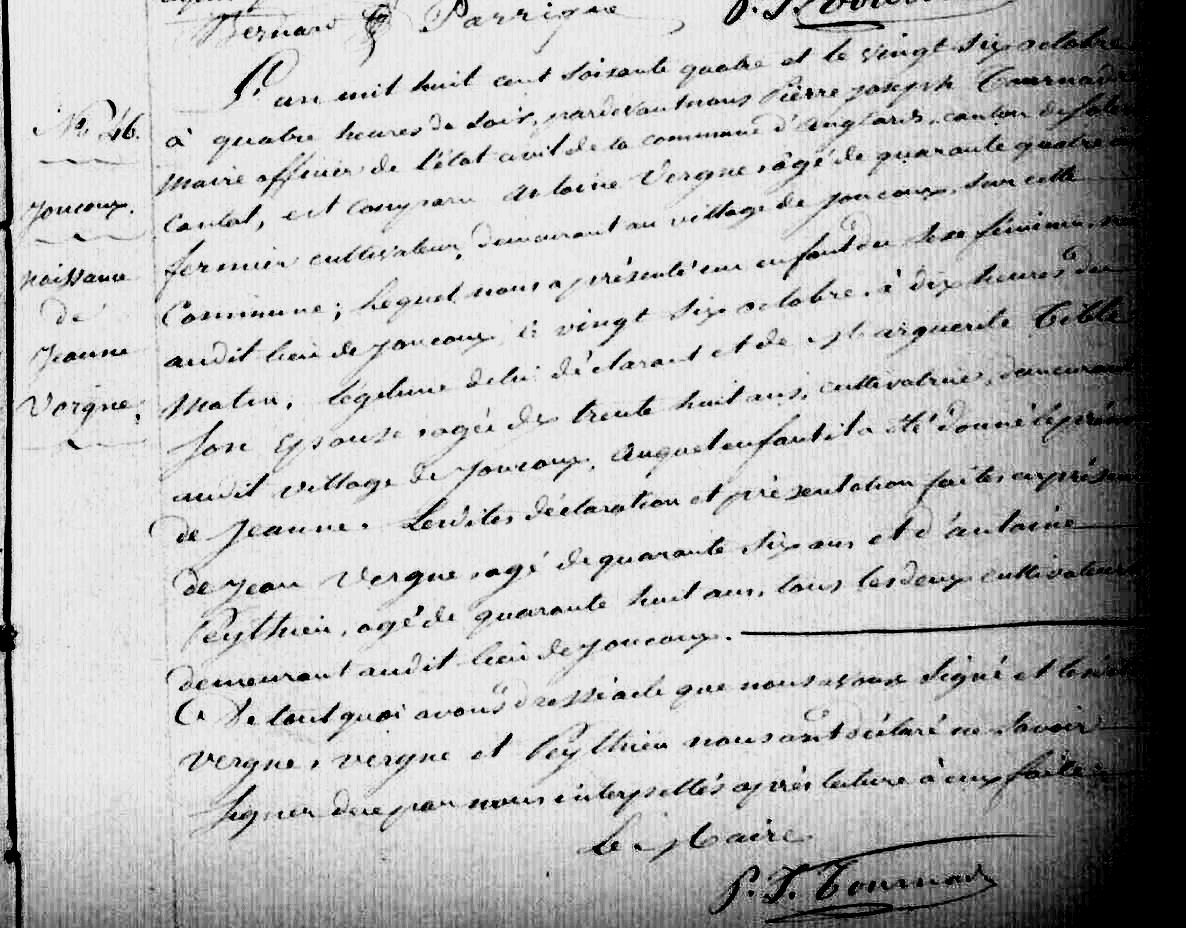 Bernard Parrique P. J. Tour
L'an mil huit cent soixante quatre et le vingt six octobre
N° 46.
à quatre heures du soir, pardevant nous Pierre joseph Tournadre
Maire officier de l'état civil de la commune d'Anglards, canton de Salers
Cantal, est comparu Antoine Vergne âgé de quarante quatre ans
Joucoux.
fermier cultivateur, demeurant au village de Joucoux, sur cette
Commune; lequel nous a présenté un enfant du sexe féminin, né
naissance
de
Jeanne
Vergne.
audit lieu de Joucoux, le vingt six octobre, à dix heures du
Matin, légitime de lui déclarant et de Marguerite Tible
Son Epouse âgée de trente huit ans, cultivatrice, demeurant
audit village de Joucoux, Auquel enfant il a été donné le prénom
de Jeanne. Lesdites déclaration et présentation faites en présence
de Jean Vergne âgé de quarante six ans et d'antoine
Peythieu, agé de quarante huit ans, tous les deux cultivateurs
demeurant audit lieu de Joucoux.
De tout quoi avons dressé acte que nous avons Signé et lesdits
Vergne, vergne et Peythieu nous ont déclaré ne Savoir
Signer de ce par nous interpellés après lecture à eux faite
Le Maire
P. J. Tournadre